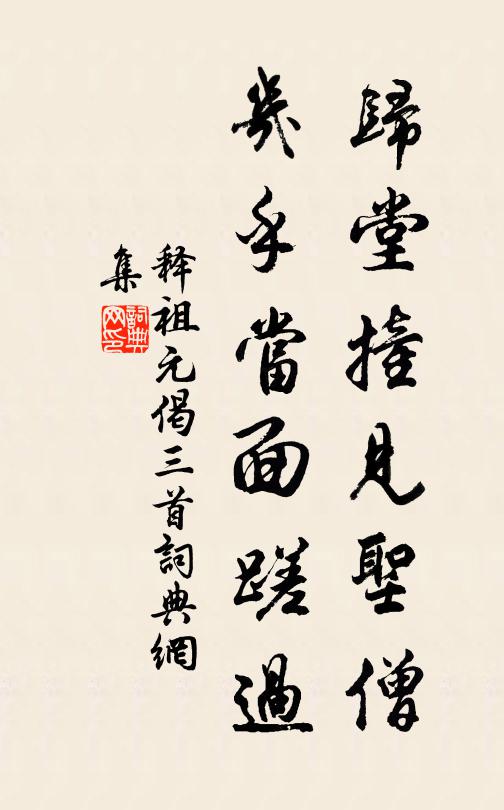 歸堂撞見聖僧
幾乎當面蹉過
释祖元偈三首詞典網
集
詞典网印